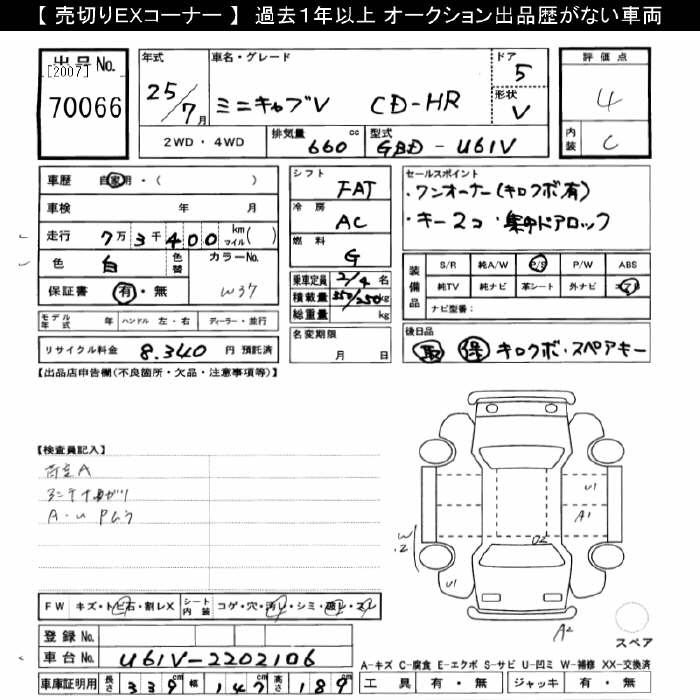 【 売切りEXコーナー 】 過去１年以上 オークション出品歴がない車両
出品No. 年式 車名・グレード ドア 評価点
[2007] 25/7月 ミニキャブV CD-HR 5 4
70066 形状 V
2WD・4WD 排気量 660 cc 型式 GBD-U61V 内装 C
車歴 自家用・( ) シフト FAT セールスポイント
車検 年 月 冷房 AC ・ワンオーナー(キロクボ有)
走行 7万3千400 km マイル( ) 燃料 G ・キー2コ ・集中ドアロック
色 白 色替 カラーNo. W37 乗車定員 2/4名 装備品 S/R 純A/W P/S P/W ABS
保証書 有・無 積載量 350/250kg 純TV 純ナビ 革シート 外ナビ エアB
総重量 kg ナビ型番：
モデル年式 年 ハンドル 左・右 ディーラー・並行 名変期限 月 日 後日品
リサイクル料金 8,340 円 預託済 取 保 キロクボ・スペアキー
【出品店申告欄(不良箇所・欠品・注意事項等)】
【検査員記入】
荷室A
A・U
U1
A1
W2
U2
U1
A2
FW キズ・トビ石・割レX シート内装 コゲ・穴・汚レ・シミ・破レ・スレ
登録No.
スペア
車台No. U61V-2202106
A-キズ C-腐食 E-エクボ S-サビ U-凹ミ W-補修 XX-交換済
車庫証明用 長さ 339cm 幅 147cm 高さ 189cm 工具 有・無 ジャッキ 有・無